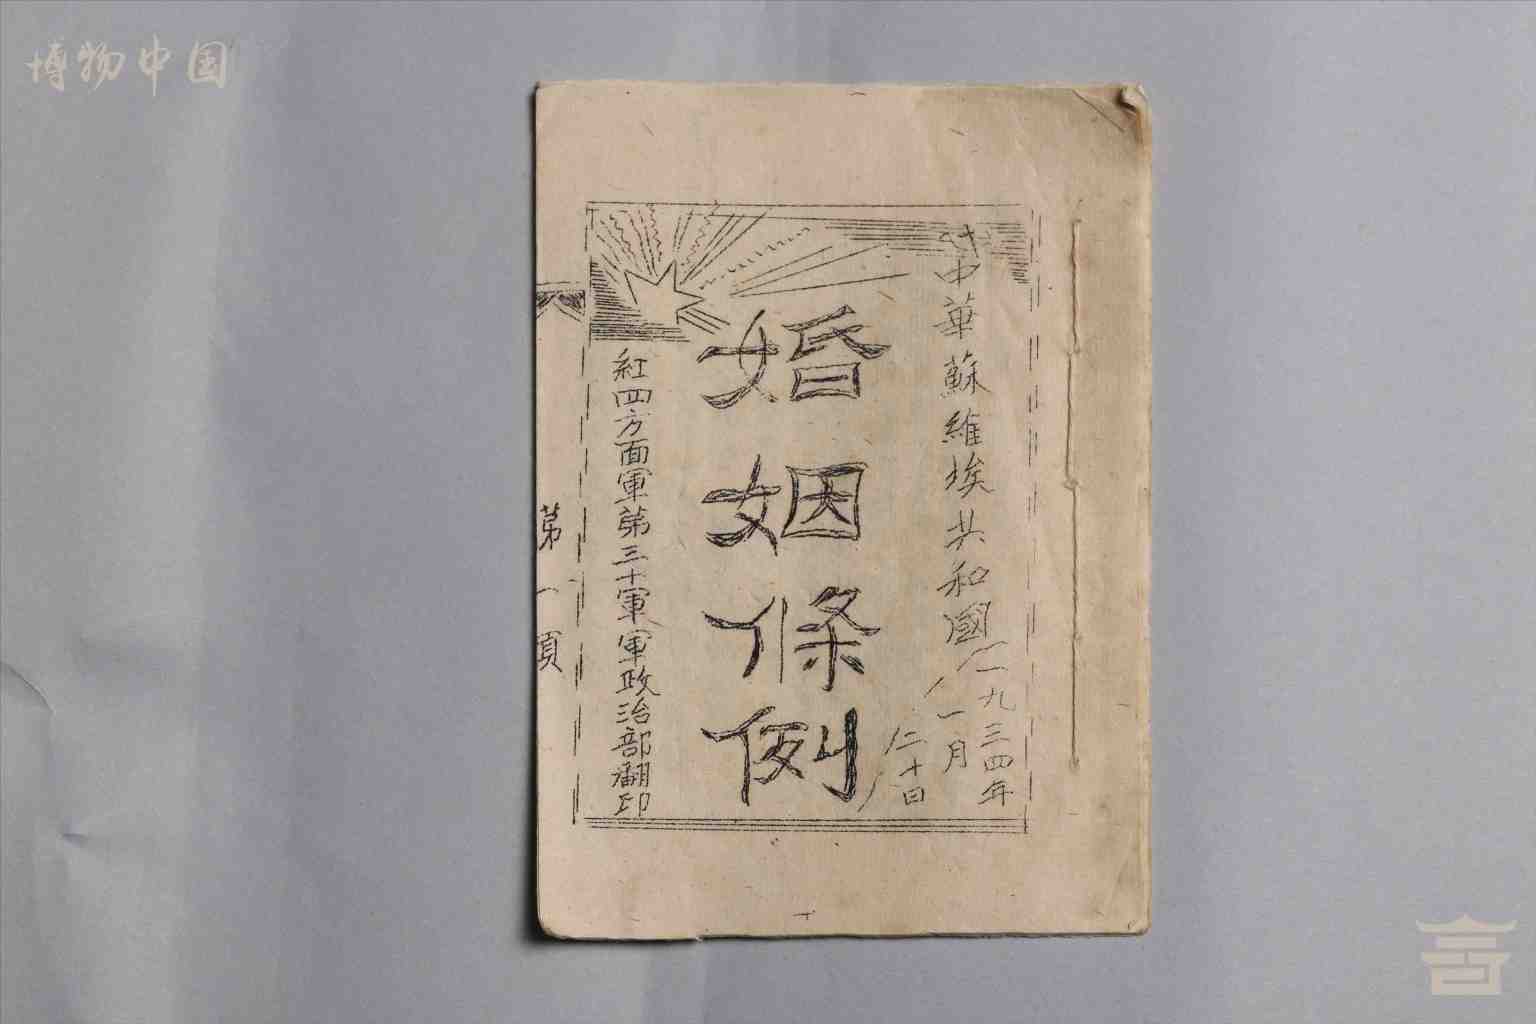 博物中国
中華蘇維埃共和國
一九三四年
一月
二十日
婚姻條例
紅四方面軍第三十軍軍政治部翻印
第一頁